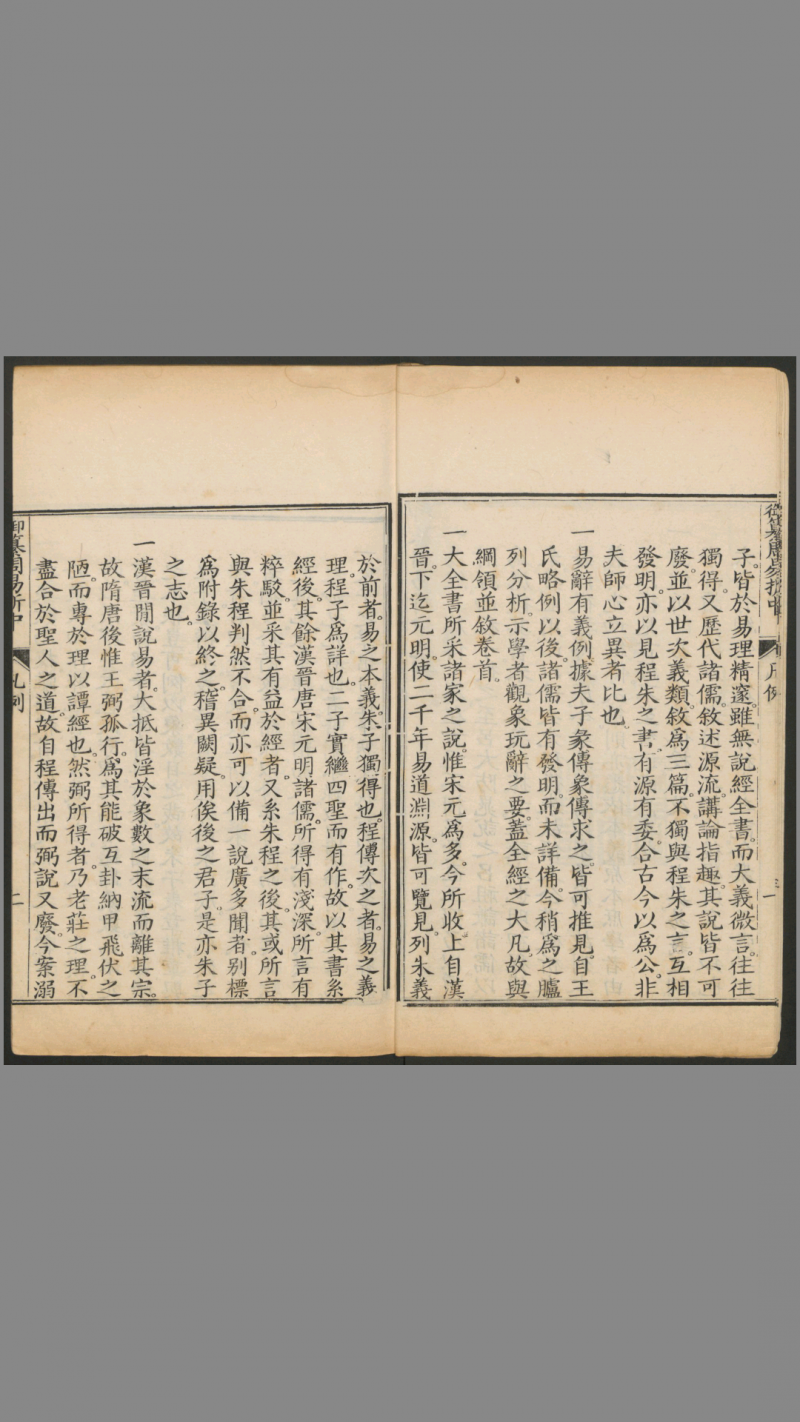 子。皆於易理精邃。雖無說經全書。而大義微言。往往
獨得。又歷代諸儒。敘述源流。講論指趣。其說皆不可
廢。並以世次義類。敘爲三篇。不獨與程朱之言。互相
發明。亦以見程朱之書。有源有委。合古今以爲公。非
夫師心立異者比也。
一易辭有義例。據夫子彖傳象傳求之。皆可推見。自王
氏略例以後。諸儒皆有發明。而未詳備。今稍爲之臚
列分析。示學者觀象玩辭之要。蓋全經之大凡。故與
綱領並敘卷首。
一大全書所采諸家之說。惟宋元爲多。今所收上自漢
晉。下迄元明。使二千年易道淵源。皆可覽見。列朱義
於前者。易之本義。朱子獨得也。程傳次之者。易之義
理。程子爲詳也。二子實繼四聖而有作。故以其書系
經後。其餘漢晉唐宋元明諸儒。所得有淺深。所言有
粹駁。並采其有益於經者。又系朱程之後。其或所言
與朱程判然不合。而亦可以備一說廣多聞者。別標
爲附錄以終之。稽異闕疑。用俟後之君子。是亦朱子
之志也。
一漢晉閒說易者。大抵皆淫於象數之末流而離其宗。
故隋唐後惟王弼孤行。爲其能破互卦納甲飛伏之
陋。而專於理以譚經也。然弼所得者。乃老莊之理。不
盡合於聖人之道。故自程傳出而弼說又廢。今案溺
凡例
二